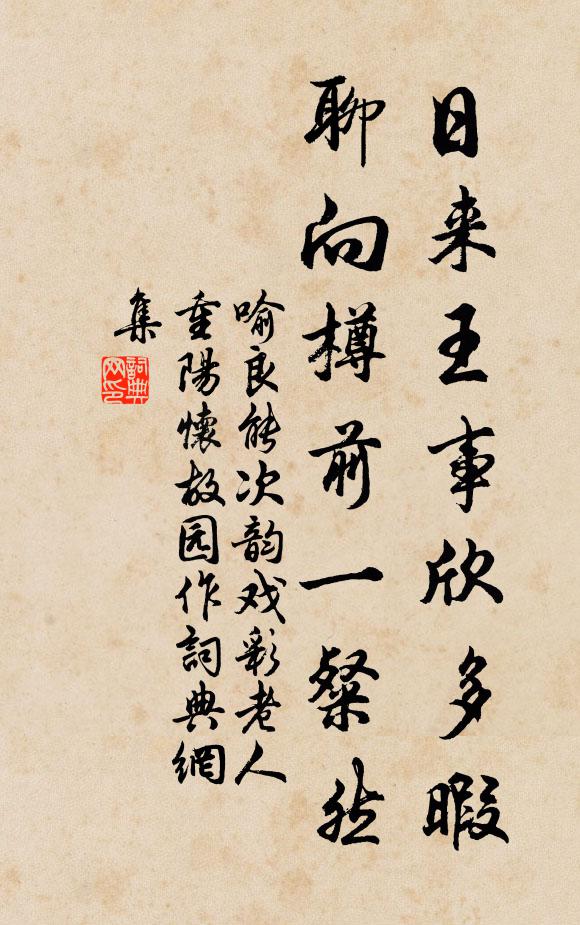 日来王事欣多暇
聊向樽前一粲然
喻良能次韵戏彩老人
重陽懷故园作詞典網
集
詞典
网印